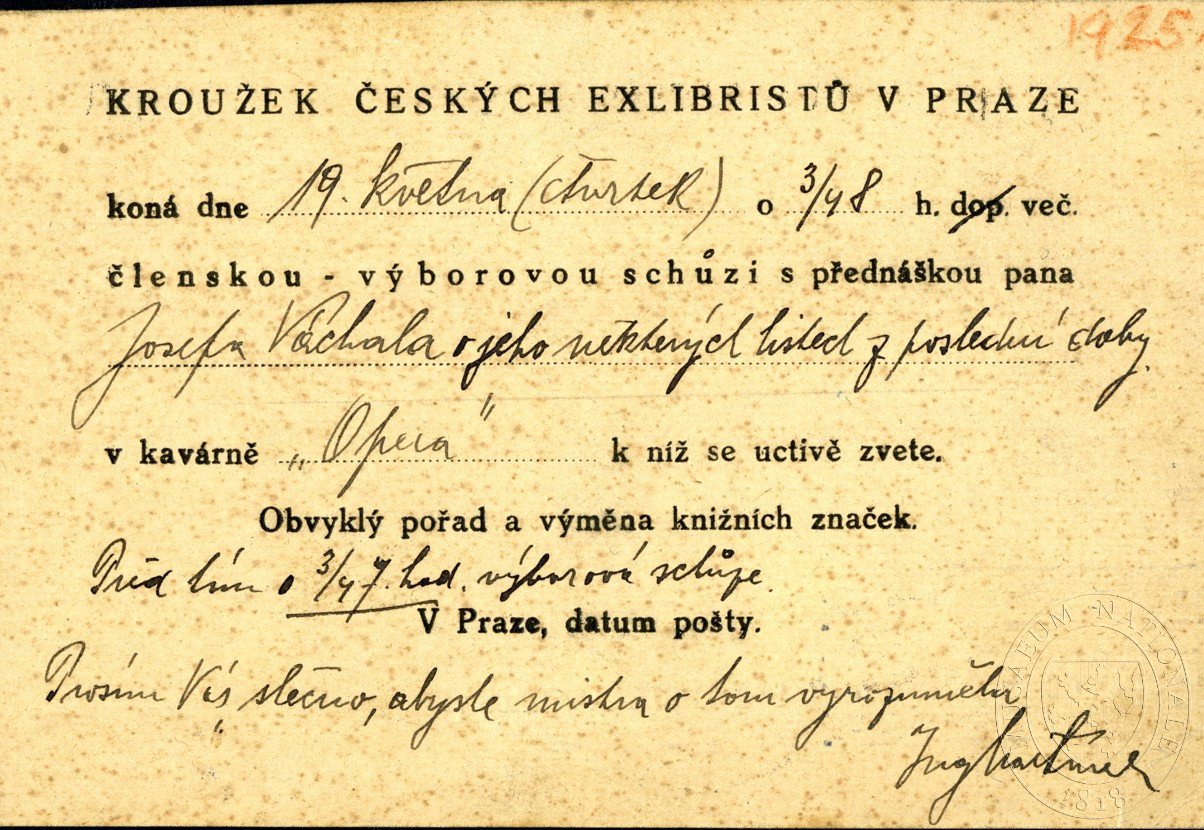 1925
KROUŽEK ČESKÝCH EXLIBRISTŮ V PRAZE
koná dne 19. května (čtvrtek) o 3/48 h. dop. več.
členskou - výborovou schůzi s přednáškou pana
Josefa Váchala o jeho některých listech z poslední doby.
v kavárně „Opera" k níž se uctivě zvete.
Obvyklý pořad a výměna knižních značek.
Před tím o 3/47. hod. výborová schůze.
V Praze, datum pošty.
Prosím Vás slečno, abyste mistra o tom vyrozuměla
Ing
MUSAEUM NATIONALE
1818